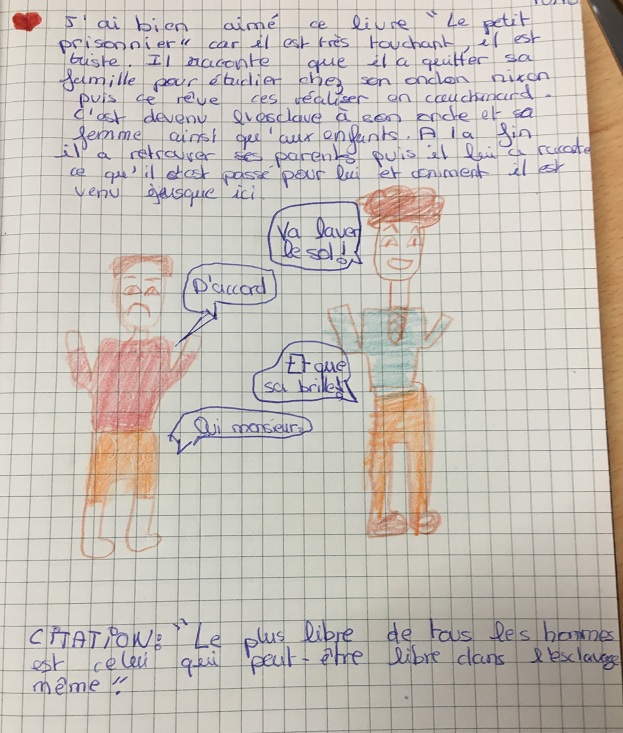 J'ai bien aimé ce livre "Le petit
prisonnier" car il est très touchant, il est
triste. Il raconte que il a quitter sa
famille pour étudier chez son onclon nixon
puis ce rêve ces réaliser en cauchmard.
C'est devenu l'esclave à son oncle et sa
femme ainsi qu'aux enfants. A la fin
il a retrouver ses parents puis il lui a racote
ce qu'il s'est passé pour lui et comment il est
venu jusque ici.
Va laver
le sol!
D'accord
Et que
sa brille!
Oui monsieur
CITATION: "Le plus libre de tous les hommes
est celui qui peut-être libre dans l'esclavage
même"